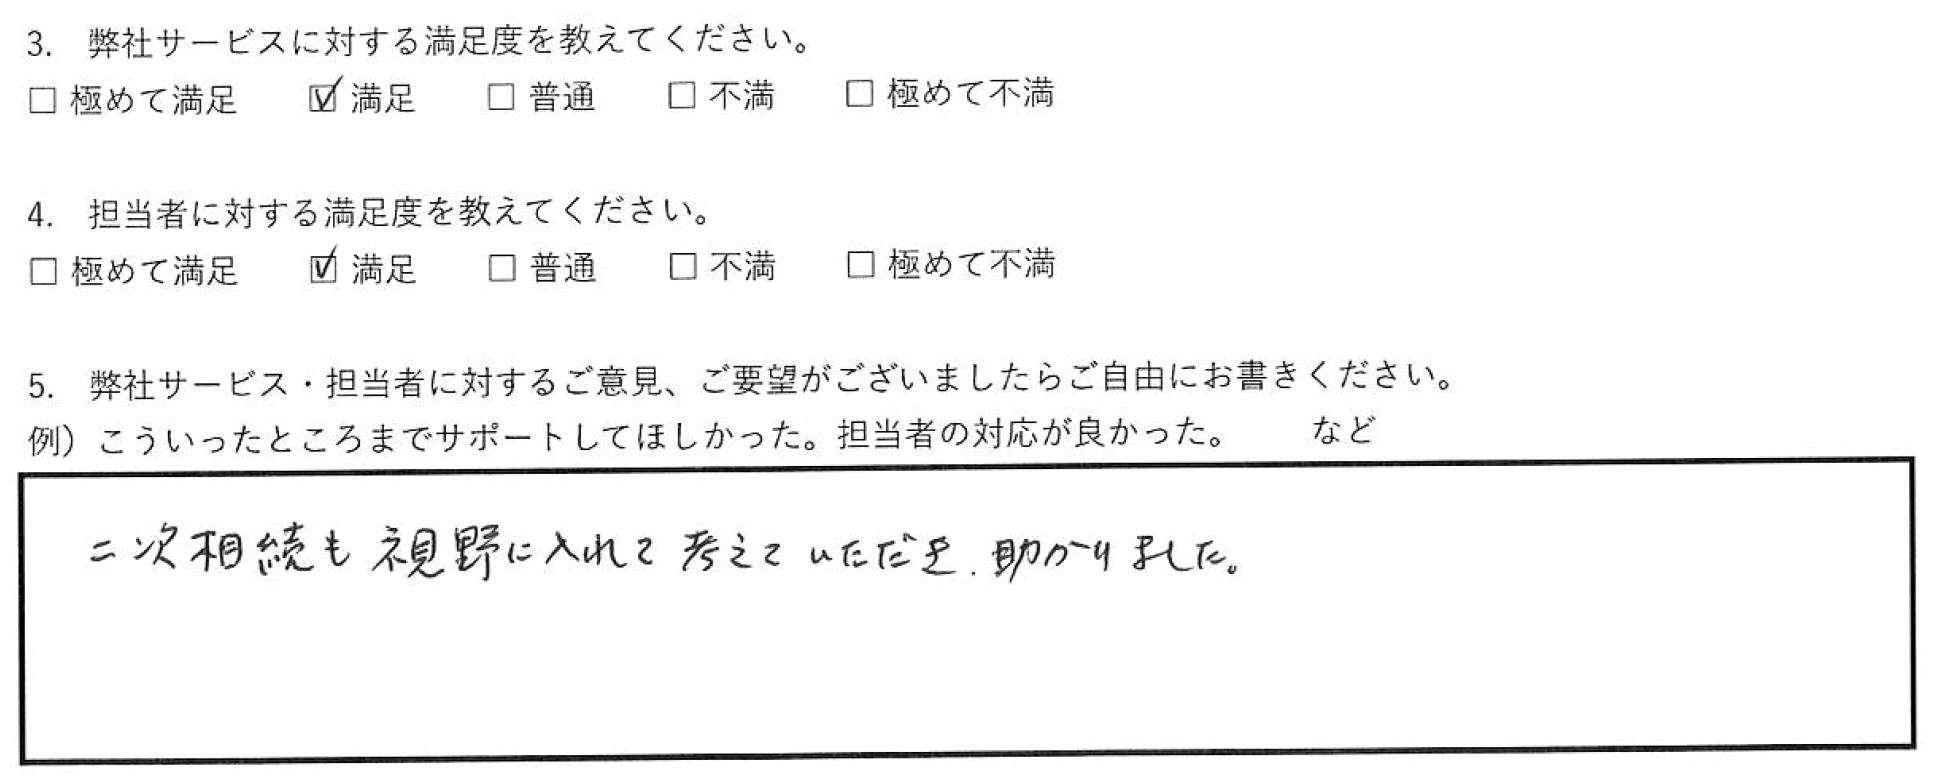 3. 弊社サービスに対する満足度を教えてください。
□ 極めて満足 ☑ 満足 □ 普通 □ 不満 □ 極めて不満
4. 担当者に対する満足度を教えてください。
□ 極めて満足 ☑ 満足 □ 普通 □ 不満 □ 極めて不満
5. 弊社サービス・担当者に対するご意見、ご要望がございましたらご自由にお書きください。
例）こういったところまでサポートしてほしかった。担当者の対応が良かった。 など
二次相続も視野に入れて考えていただき、助かりました。